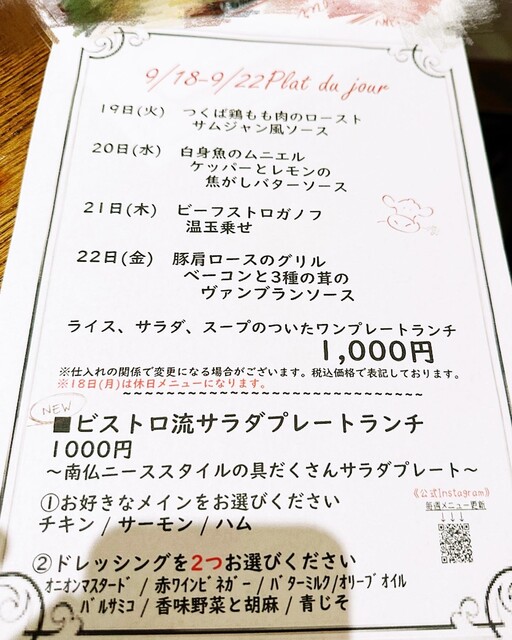 9/18-9/22 Plat du jour
19日(火) つくば鶏もも肉のロースト
サムジャン風ソース
20日(水) 白身魚のムニエル
ケッパーとレモンの
焦がしバターソース
21日(木) ビーフストロガノフ
温玉乗せ
22日(金) 豚肩ロースのグリル
ベーコンと3種の茸の
ヴァンブランソース
ライス、サラダ、スープのついたワンプレートランチ
1,000円
※仕入れの関係で変更になる場合がございます。税込価格で表記しております。
※18日(月)は休日メニューになります。
~~~~~~~~~~~~~~~~~~~~~~~~~~~~
NEW
■ビストロ流サラダプレートランチ
1000円
～南仏ニーススタイルの具だくさんサラダプレート～
《公式Instagram》
毎週メニュー更新
↓↓↓
①お好きなメインをお選びください
チキン / サーモン / ハム
②ドレッシングを2つお選びください
オニオンマスタード / 赤ワインビネガー / バターミルク/オリーブオイル
バルサミコ / 香味野菜と胡麻 / 青じそ